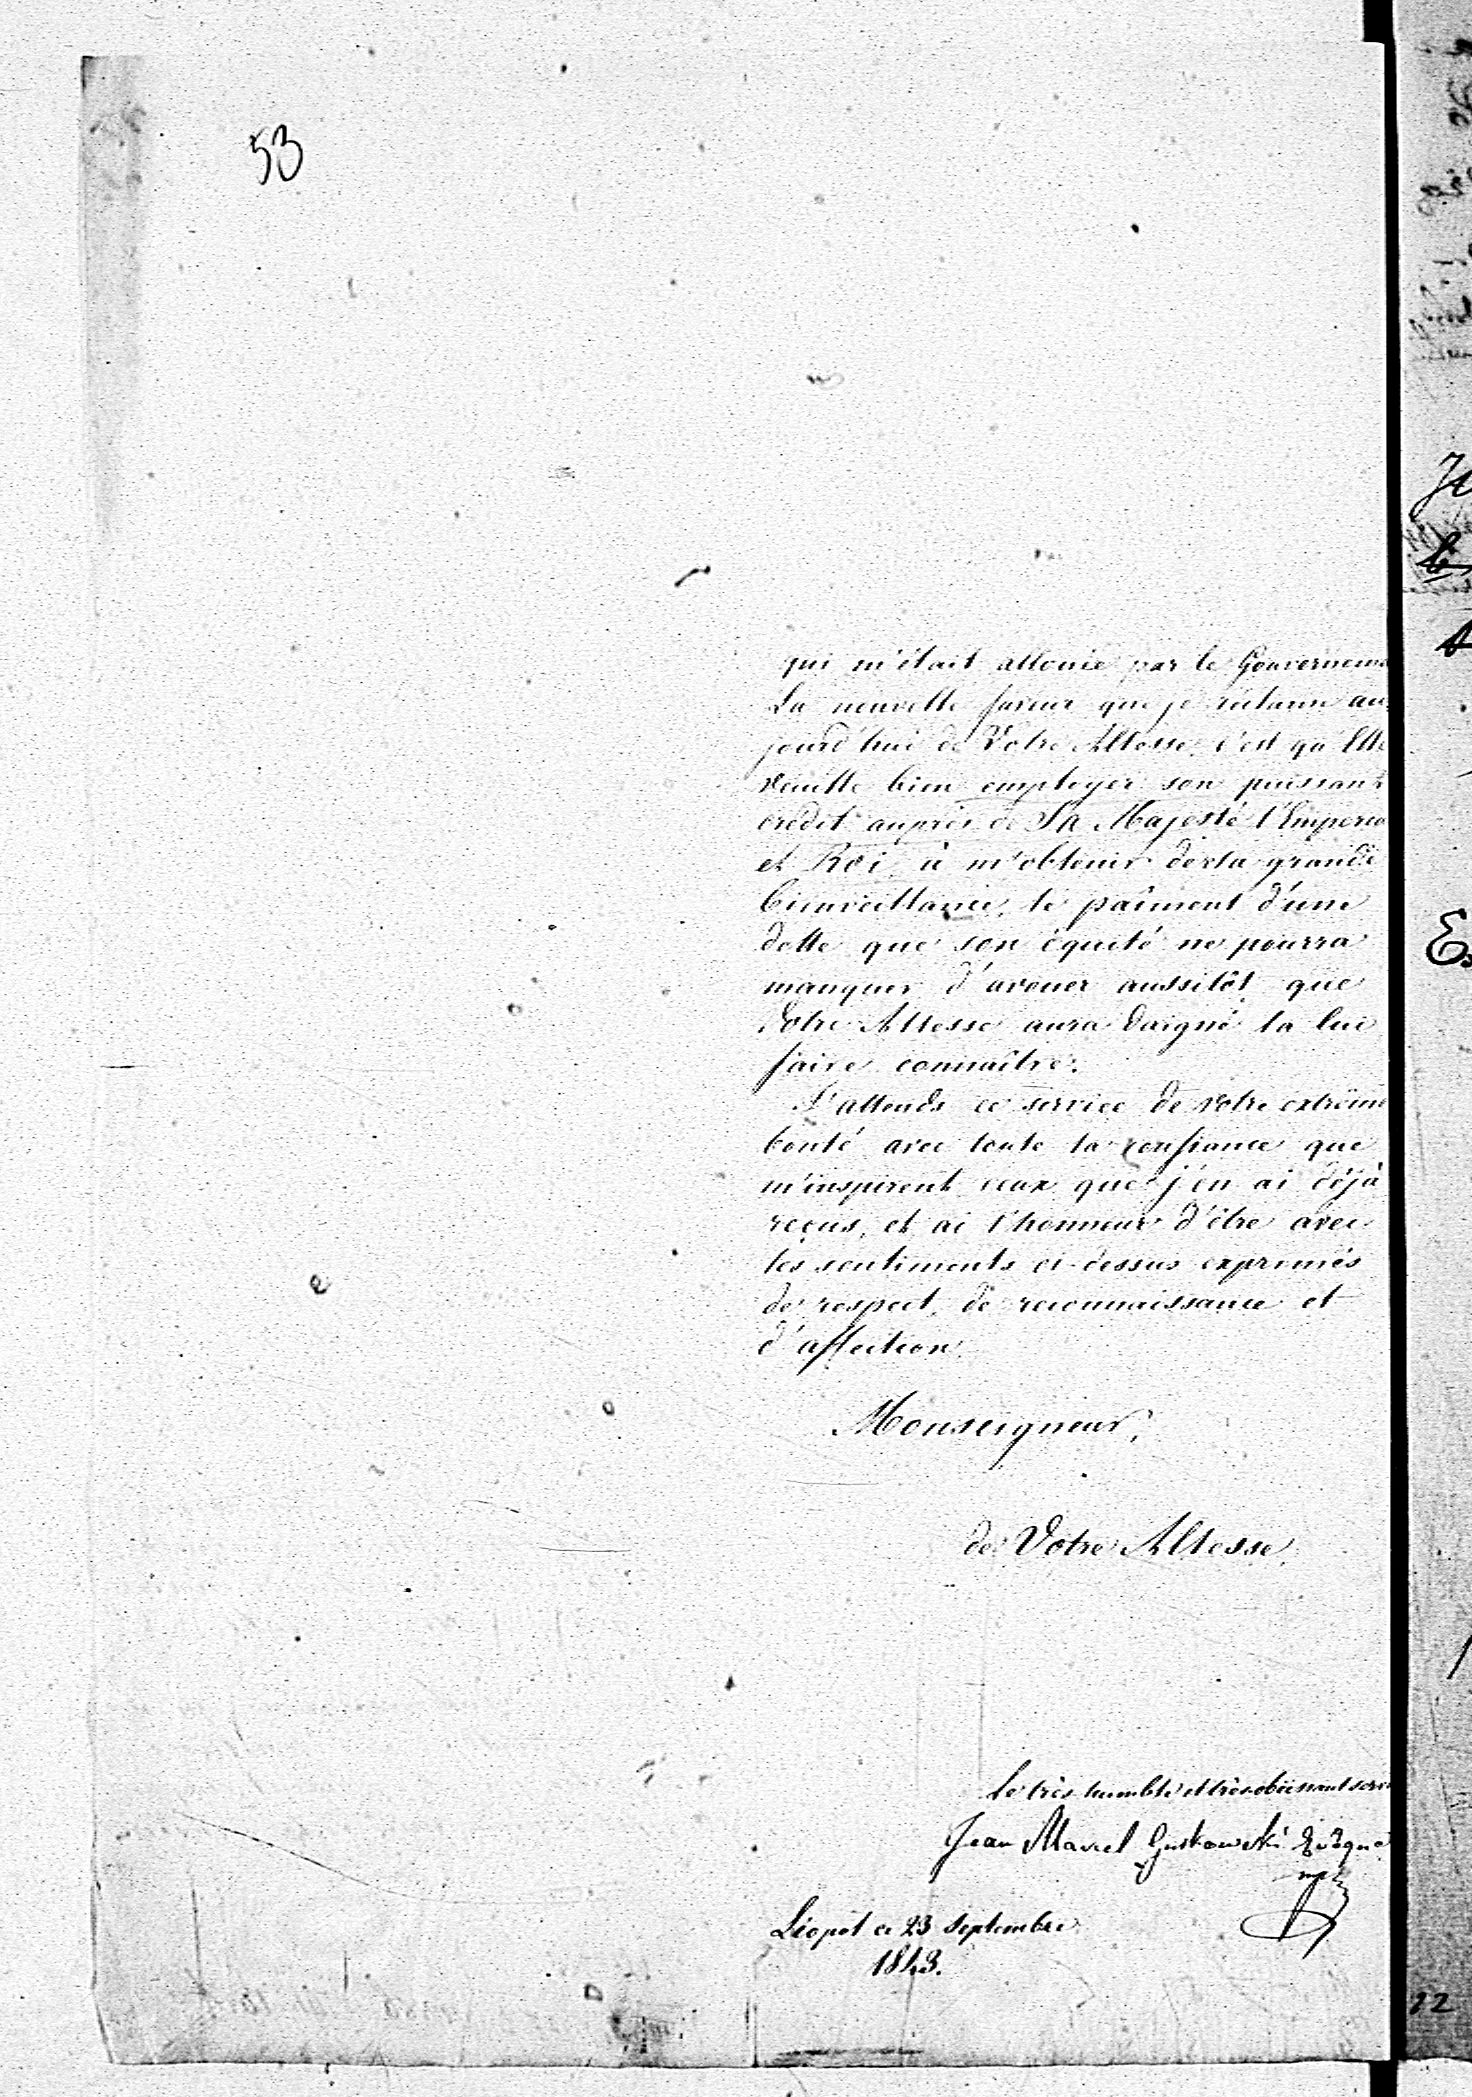 53
qui m'était allouée par le Gouverneme
La nouvelle faveur que je réclame au
jourd'hui de Votre Altesse, c'est qu'Elle
veuille bien employer son puissant
crédit auprès de Sa Majesté l'Empereu
et Roi à m'obtenir de sa grande
bienveillance, le paîment d'une
dette que son équité ne pourra
manquer d'avouer aussitôt que
Votre Altesse aura daigné la lui
faire connaître.
J'attends ce service de votre extrême
bonté avec toute la confiance que
m'inspirent ceux que j'en ai déjà
reçus, et ai l'honneur d'être avec
les sentiments ci-dessus exprimés
de respect, de reconnaissance et
d'affection
Monseigneur,
de Votre Altesse,
Le très humble et très obéissant serv
Jean Marcel Gutkowski Evêque
Léopol ce 23 Septembre
1843.
22